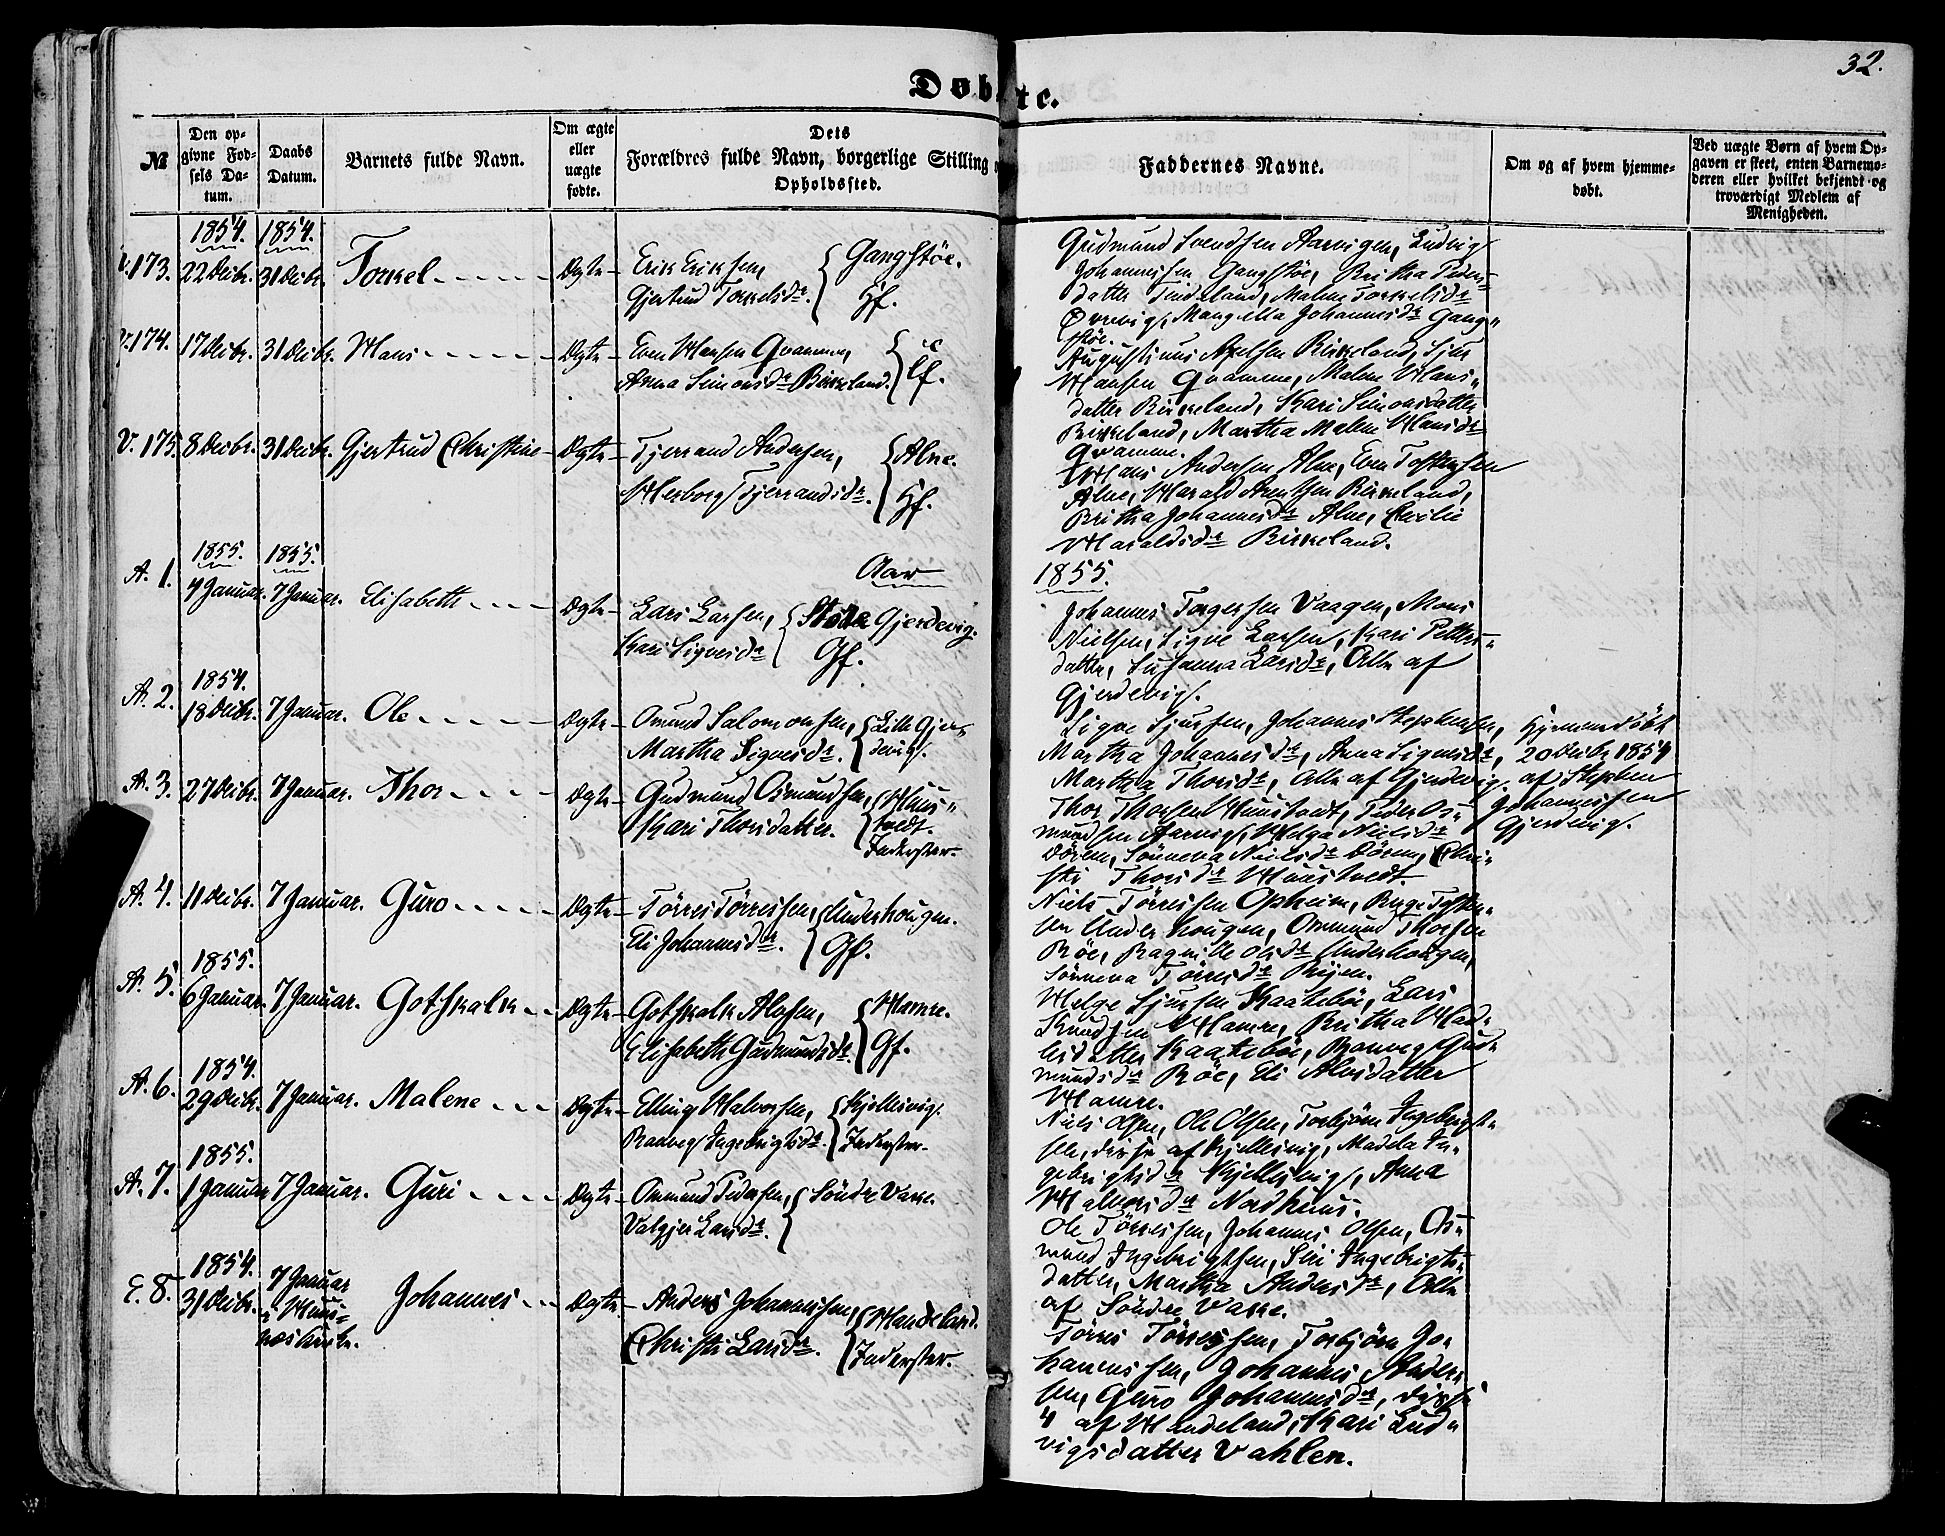 32.
Døbte.
№
Den opgivne Fødsels Datum.
Daabs Datum.
Barnets fulde Navn.
Om ægte eller uægte fødte.
Dets Forældres fulde Navn, borgerlige Stilling o Opholdssted.
Faddernes Navne.
Om og af hvem hjemmedøbt.
Ved uægte Børn af hvem Opgaven er skeet, enten Barnemoderen eller hvilket bekjendt og troværdigt Medlem af Menigheden.
1854. 1854.
173. 22 Decbr. 31 Decbr. Torkel Ægte
Erik Eriksen, Gangstøe.
Gjertrud Torkelsdr. Hf.
Gudmund Svendsen Aarvigen, Ludvig
Johannessen Gangstøe, Britha Peders-
datter Tindeland, Malene Torkelsdr
Ørrevig, Mangella Johannesdr Gang-
støe.
174. 17 Decbr. 31 Decbr. Hans Ægte
Even Hansen Qvamme,
Anna Simonsdr Birkeland. Lf.
Augustinus Axelsen Birkeland, Sjur
Hansen Qvamme, Malene Hans-
datter Birkeland, Kari Simonsdatter
Birkeland, Martha Malene Hansdr
Qvamme.
V. 175. 8 Decbr. 31 Decbr. Gjertrud Christine Ægte
Tjerrand Andersen, Alne.
Herborg Tjerrandsdr. Hf.
Hans Andersen Alne, Even Tostensen
Alne, Harald Arentsen Birkeland,
Britha Johannesdr Alne, Cecilie
Haraldsdr Birkeland.
1855. 1855. Aar 1855.
A. 1. 4 Januar. 7 Januar. Elisabeth Ægte
Lars Larsen, Store Gjerdevig.
Kari Sigvesdr Gf.
Johannes Torgersen Vaagen, Mons
Nielsen, Sigve Larsen, Kari Petters-
datter, Susanna Larsdr, Alle af
Gjerdevig.
1854.
A. 2. 18 Decbr. 7 Januar. Ole Ægte
Omund Salomonsen, Lille Gjer-
Martha Sigvesdr. devig.
Sigve Sjursen, Johannes Stephensen,
Martha Johannesdr, Anna Sigvesdr,
Martha Thorsdr, Alle af Gjerdevig.
Hjemmedøbt
20 Decbr 1854
af Stephen
Johannessen
Gjerdevig.
A. 3. 27 Decbr. 7 Januar. Thor Ægte
Gudmund Osmundsen, Huus-
Kari Thorsdatter. tvedt.
Inderster.
Thor Thorsen Huustvedt, Peder Os-
mundsen Aarvig, Helga Nielsdr
Døren, Sønneva Nielsdr Døren, Chri-
sti Thorsdr Huustvedt.
A. 4. 11 Decbr. 7 Januar. Guro Ægte
Tørres Tørressen, Underhougen.
Eli Johannesdr. Gf.
Niels Tørressen Opheim, Børge Tosten-
sen Underhougen, Ommund Thorsen
Røe, Ragnilde Olsdr Underhougen,
Sønneva Tørresdr
1855.
A. 5. 6 Januar. 7 Januar. Gotskalk Ægte
Gotskalk Alvsen, Hamre.
Elisabeth Gudmundsdr. Gf.
Helge Sjursen Kaatebøe, Lars
Knudsen Hamre, Britha Had-
lesdatter Kaatebøe, Ranveg Gud-
mundsdr Røe, Eli Alvsdatter
Hamre.
1854.
A. 6. 29 Decbr. 7 Januar. Malene Ægte
Elling Halvorsen, Kjellesvig.
Ranveg Ingebrigtsdr. Inderster.
Niels Olsen, Ole Olsen, Torbjørn Ingebrigt-
sen, disse af Kjellesvig, Madela In-
gebrigtsdr Kjellesvig, Anna
Halvorsdr Nordhuus.
1855.
A. 7. 1 Januar 7 Januar. Guri Ægte
Ommund Pedersen, Søndre Varre.
Valgjer Larsdr.
Ole Tørressen, Johannes Olsen, Os-
mund Ingebrigtsen, Siri Ingebrigts-
datter, Martha Andersdr, Alle
af Søndre Varre.
1854.
E. 8. 31 Decbr. 7 Januar
i Huus-
næs Kirke.
Johannes Ægte
Anders Johannessen, Handeland.
Christi Larsdr. Inderster.
Tørres Tørressen, Torbjørn Jo-
hannessen, Johannes Anders-
sen, Guro Johannesdr, disse
4 af Handeland, Kari Lud-
vigsdatter Vahlen.